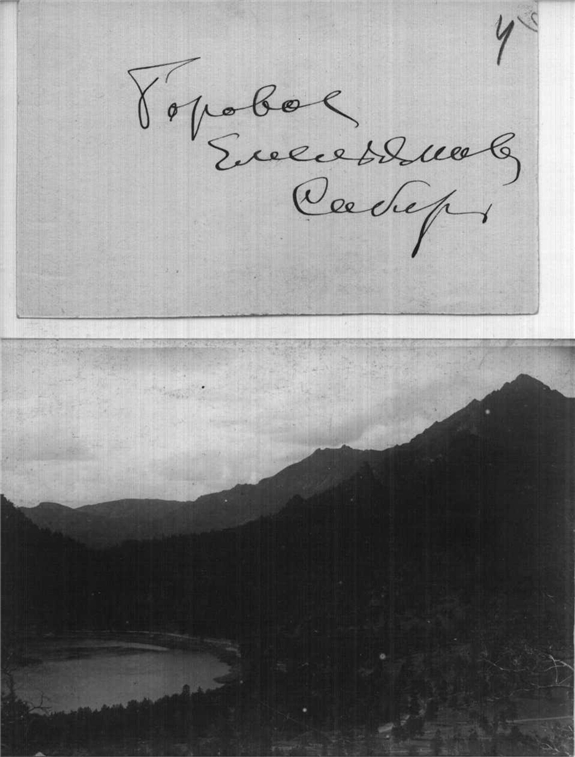 Боровое
Емельянов
Сибирь